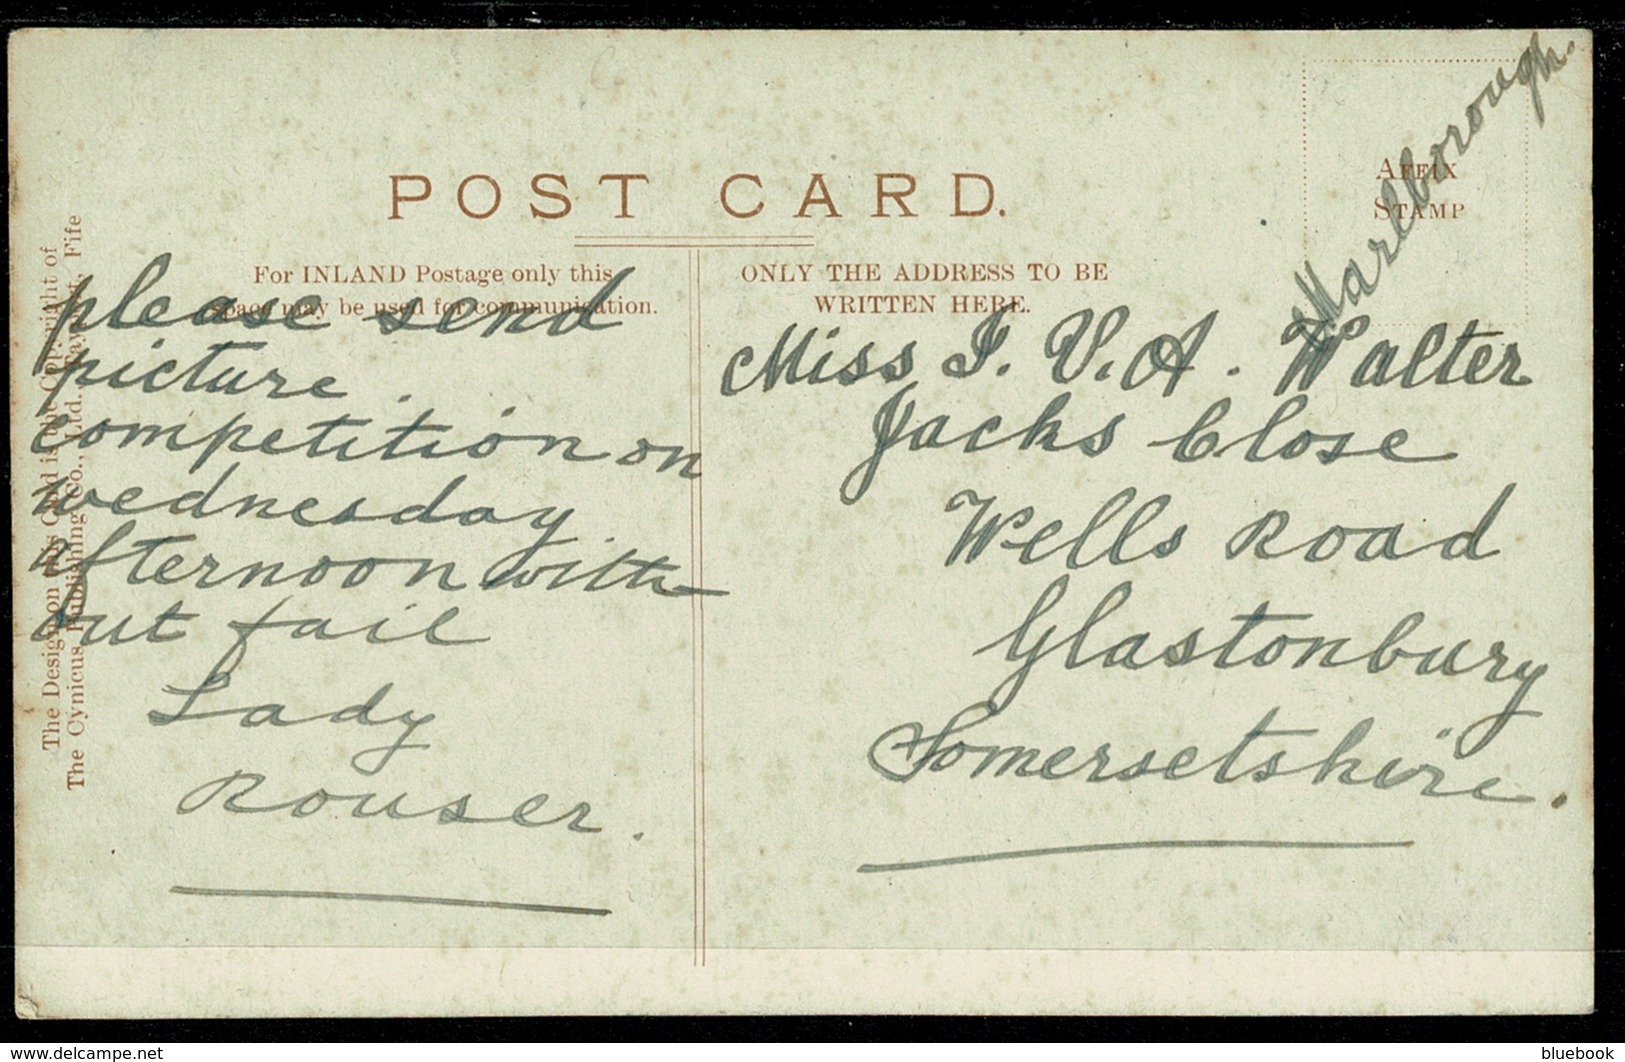 Marlborough.
POST CARD.
AFFIX
STAMP
For INLAND Postage only this
space may be used for communication.
ONLY THE ADDRESS TO BE
WRITTEN HERE.
The Design on this Card is the Copyright of
The Cynicus Publishing Co., Ltd. Tayport, Fife
please send
picture
competition on
wednesday
afternoon with
out fail
Lady
Rouser.
Miss I. V. A. Walter
Jacks Close
Wells Road
Glastonbury
Somersetshire.
www.delcampe.net
bluebook